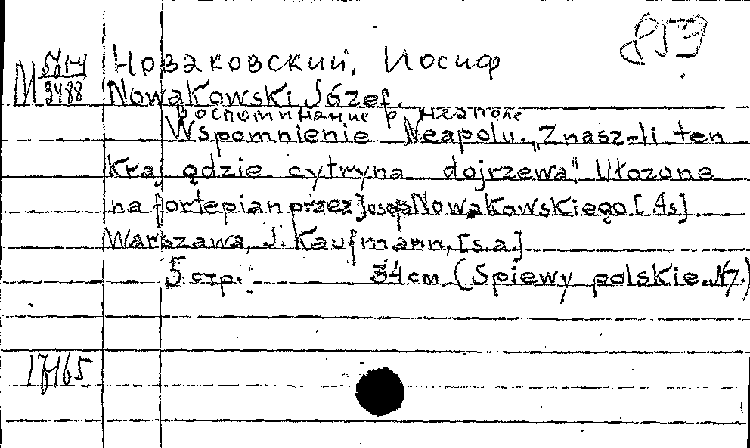 853
Новаковский, Иосиф
М 3488
Nowakowski Józef.
Воспоминание о Неаполе
Wspomnienie Neapolu. „Znasz-li ten
kraj gdzie cytryna dojrzewa". Ułożone
na fortepian przez Josepa Nowakowskiego. [As]
Warszawa, J. Kaufmann, [s.a.]
5 стр. 34 cm (Spiewy polskie. N7.)